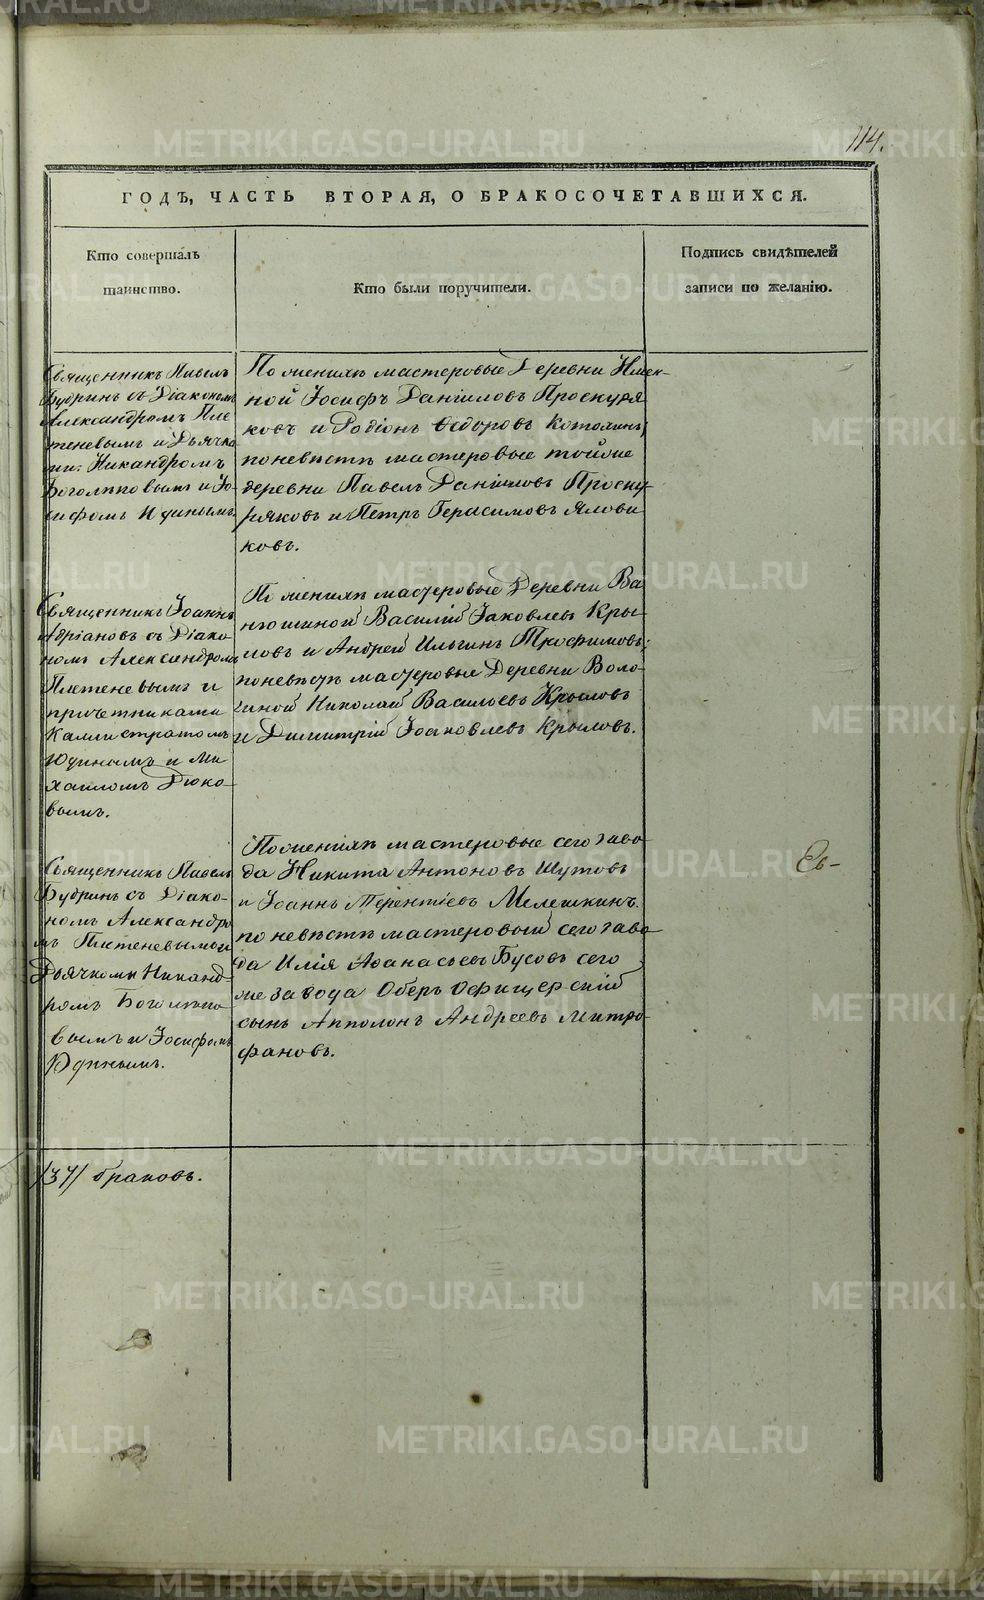 114.
ГОДЪ, ЧАСТЬ ВТОРАЯ, О БРАКОСОЧЕТАВШИХСЯ.
Кто совершалъ
таинство.
Кто были поручители.
Подпись свидѣтелей
записи по желанію.
Священникъ Павелъ
Будринъ съ Діакономъ
Александромъ Пле-
теневымъ и Дьячка-
ми: Никандромъ
Боголѣповымъ и Іо-
сифомъ Юдинымъ
По женихѣ мастеровые Деревни
ной Іосифъ Даніиловъ Проскуря
ковъ и Родіонъ Ѳедоровъ
по невѣстѣ мастеровые тойже
деревни Павелъ Даніиловъ Проску-
ряковъ и Петръ Герасимовъ Ялови
ковъ.
Священникъ Іоаннъ
Адріановъ съ Діако-
номъ Александромъ
Плетеневымъ и
причетниками
Каллистратомъ
Юдинымъ и Ми
хаиломъ Дюко-
вымъ.
По женихѣ мастеровые Деревни Ва
ньшиной Василій Іаковлевъ Кры-
ловъ и Андрей Ильинъ Трофимовъ;
по невѣстѣ мастеровые Деревни Воло-
гиной Николай Васильевъ Крыловъ
и Димитрій Іоаковлевъ Крыловъ.
Священникъ Павелъ
Будринъ съ Діако-
номъ Александро
мъ Плетеневымъ и
Дьячкоми Никанд-
ромъ Боголѣпо
вымъ и Іосифомъ
Юдинымъ.
По женихѣ мастеровые сего заво-
да Никита Антоновъ Шутовъ
и Іоаннъ Терентіевъ Мелешкинъ.
по невѣстѣ мастеровый сего заво
да Илія Аѳанасьевъ Бусовъ сего
же завода Оберъ Офицерскій
сынъ Апполонъ Андреевъ Митро-
фановъ.
/37/ браковъ.
METRIKI.GASO-URAL.RU